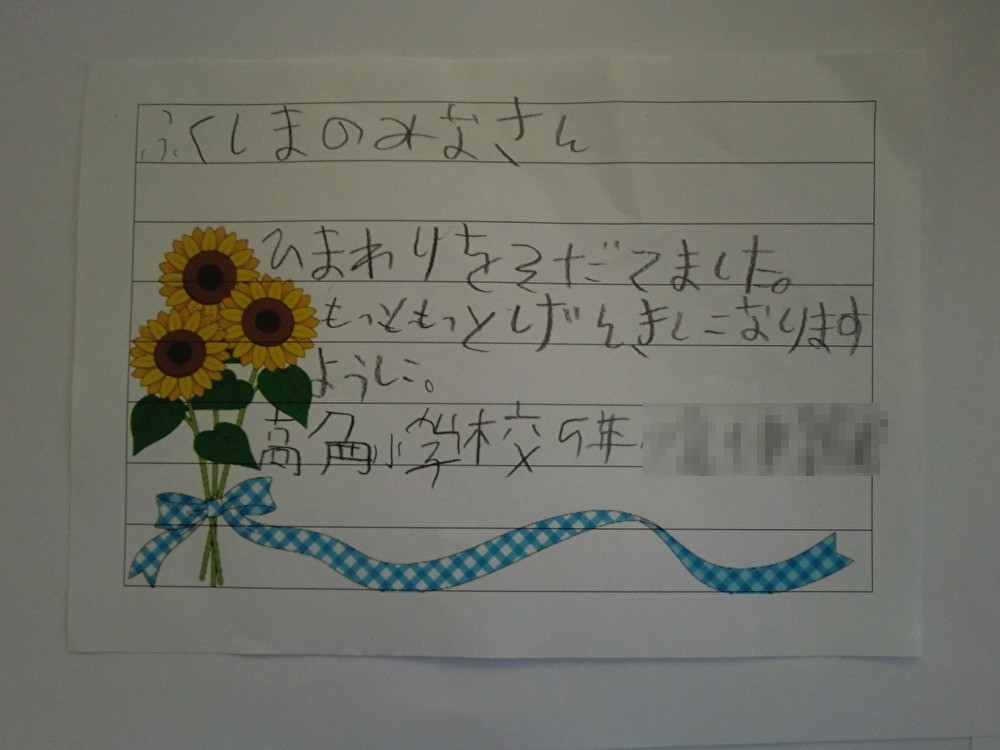 ふくしまのみなさん
ひまわりをそだてました。
もっともっとげんきになります
ように。
高角小学校5年